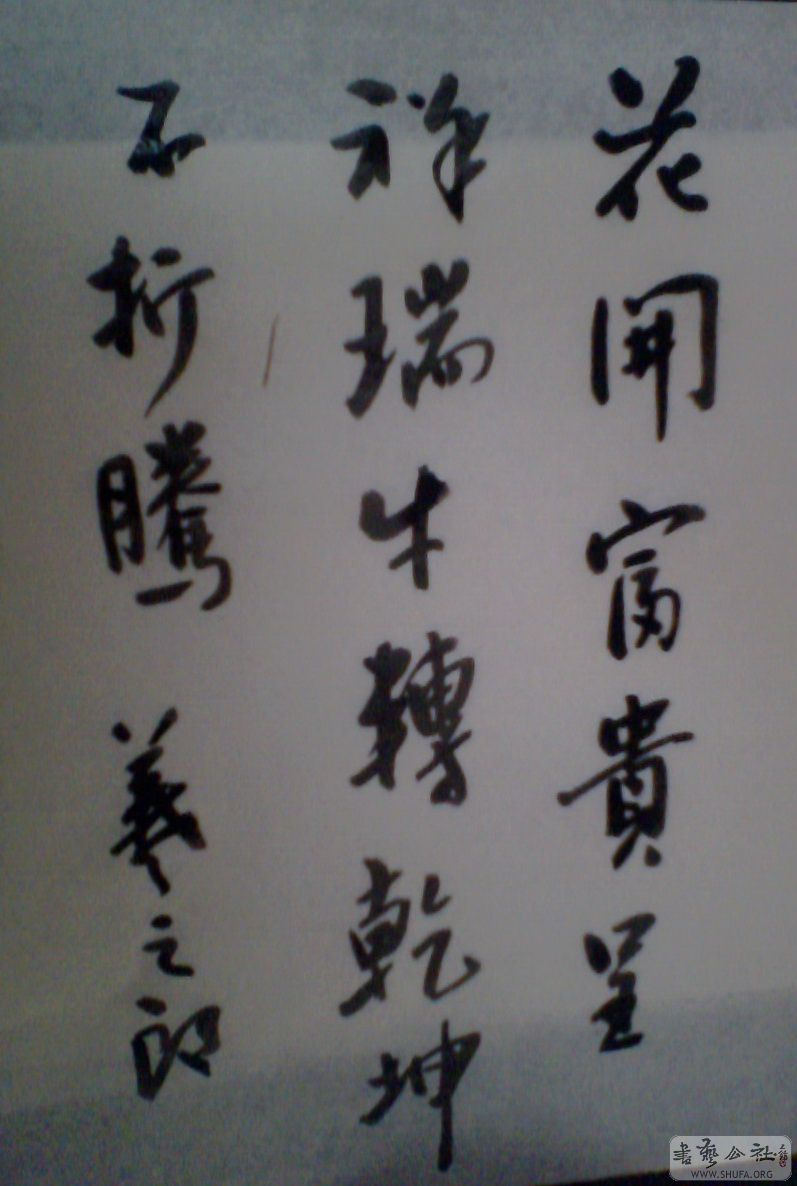 花開富貴呈
祥瑞牛轉乾坤
不折騰 羲之郎
書藝公社
WWW.SHUFA.ORG